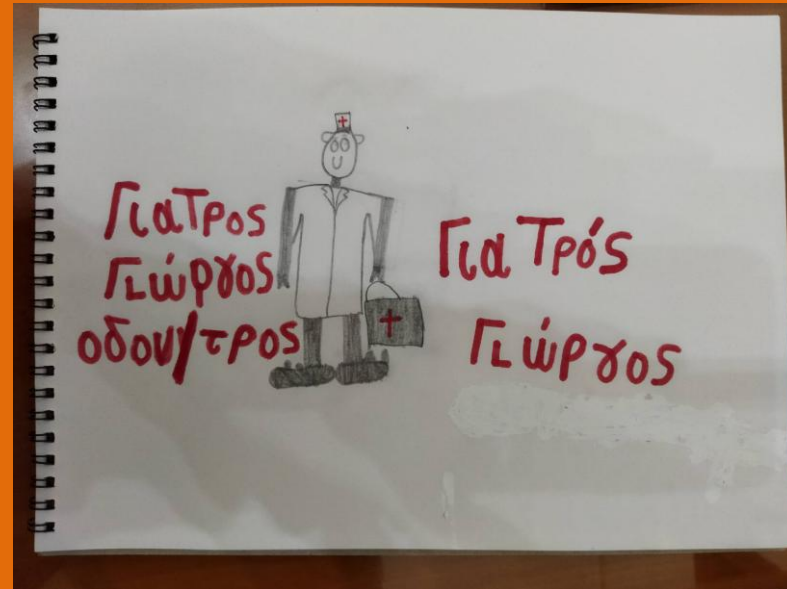 Γιατρος
Γιώργος
οδον/τρος
Για Τρός
Γιώργος